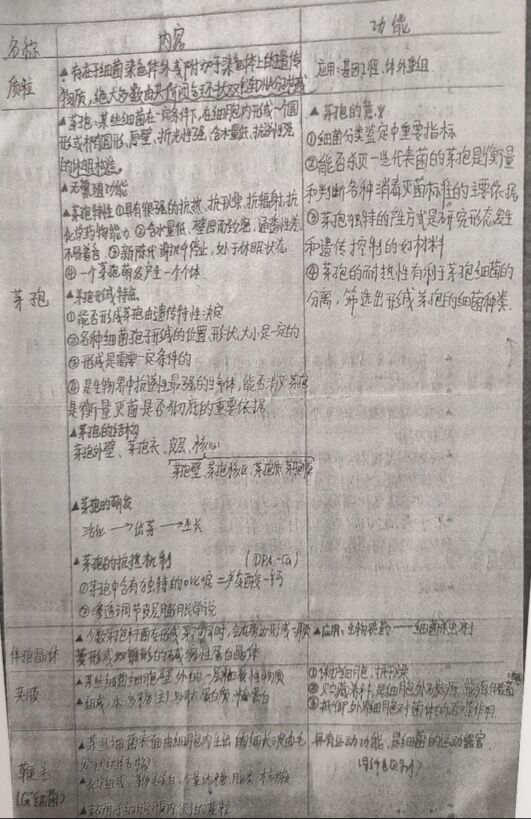 名称 内容 功能
质粒
▲存在于细菌染色体外或附加于染色体上的遗传
物质,绝大多数由共价闭合环状双螺旋DNA分子构成
应用:基因工程,体外重组.
芽孢
▲芽孢:某些细菌在一定条件下,在细胞内形成一个圆
形或椭圆形,厚壁,折光性强,含水量低,抗逆性强
的休眠构造。
▲无繁殖功能
▲芽孢特性①具有很强的抗热、抗干燥、抗辐射、抗
化学药物能力 ②含水量低、壁厚而致密,通透性差,
不易着色 ③新陈代谢几乎停止,处于休眠状态
④一个芽孢萌发产生一个个体.
▲芽孢形成特点
①能否形成芽孢由遗传特性决定
②各种细菌孢子形成的位置、形状、大小是一定的
③形成是需要一定条件的
④是生物界中抗逆性最强的生命体,能否消灭芽孢
是衡量灭菌是否彻底的重要依据
▲芽孢的结构
芽孢外壁、芽孢衣、皮层、核心
芽孢壁、芽孢核区、芽孢质、芽孢膜
▲芽孢的萌发
活化→出芽→生长
▲芽孢的抗热机制 (DPA-Ca)
①芽孢中含有独特的吡啶二羧酸一钙
②渗透调节皮层膨胀学说
▲芽孢的意义
①细菌分类鉴定中重要指标
②能否杀灭一些代表菌的芽孢是衡量
和判断各种消毒灭菌标准的主要依据
③芽孢独特的产生方式是研究形态发生
和遗传控制的好材料
④芽孢的耐热性有利于芽孢细菌的
分离,筛选出形成芽孢的细菌种类.
伴孢晶体
▲少数芽孢杆菌在形成芽孢同时,会在旁边形成一颗
菱形或双锥形的碱溶性蛋白晶体
▲应用:生物农药——细菌杀虫剂
夹膜
▲某些细菌细胞壁外的一层
▲组成:水、多糖
①保护细胞,抗干燥
②贮藏养料,是细胞外碳源
鞭毛
(G⁻细菌)
▲某些细菌表面由细胞内生出的细长、波曲、毛
发状的结构
具有运动功能,是细菌的运动器官.